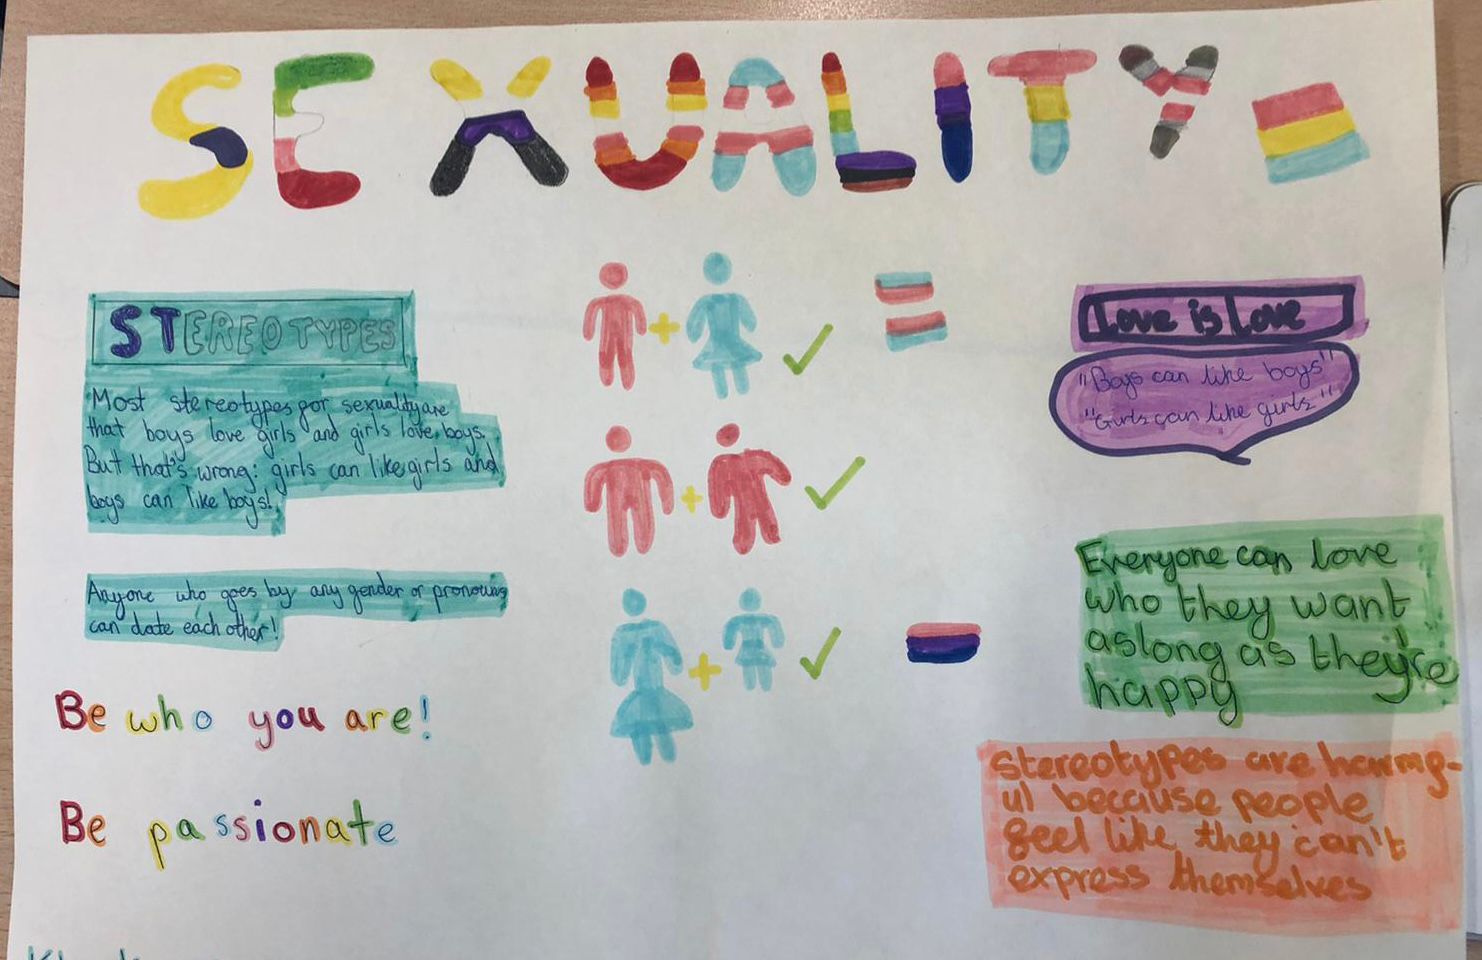 SEXUALITY
STEREOTYPES
Most stereotypes for sexuality are
that boys love girls and girls love boys.
But that's wrong: girls can like girls and
boys can like boys!
Anyone who goes by any gender or pronouns
can date each other!
Be who you are!
Be passionate
Love is Love
"Boys can like boys"
"Girls can like girls"
Everyone can love
who they want
aslong as they're
happy
Stereotypes are harmf-
ul because people
feel like they can't
express themselves